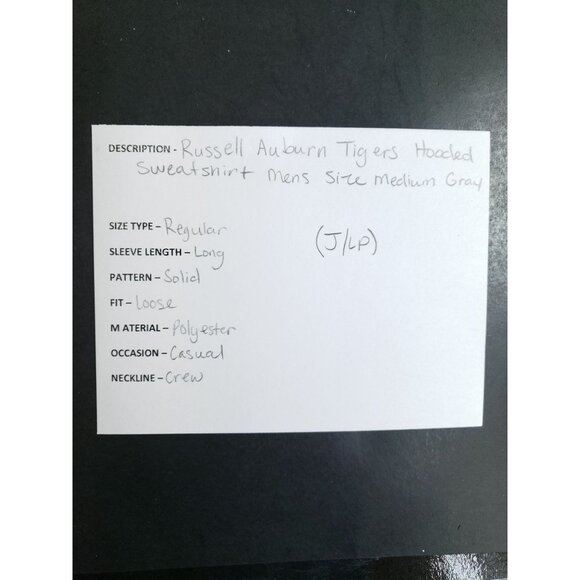 DESCRIPTION - Russell Auburn Tigers Hooded
Sweatshirt Mens Size Medium Gray
SIZE TYPE – Regular
(J/LP)
SLEEVE LENGTH – Long
PATTERN – Solid
FIT – Loose
MATERIAL – Polyester
OCCASION – Casual
NECKLINE – Crew